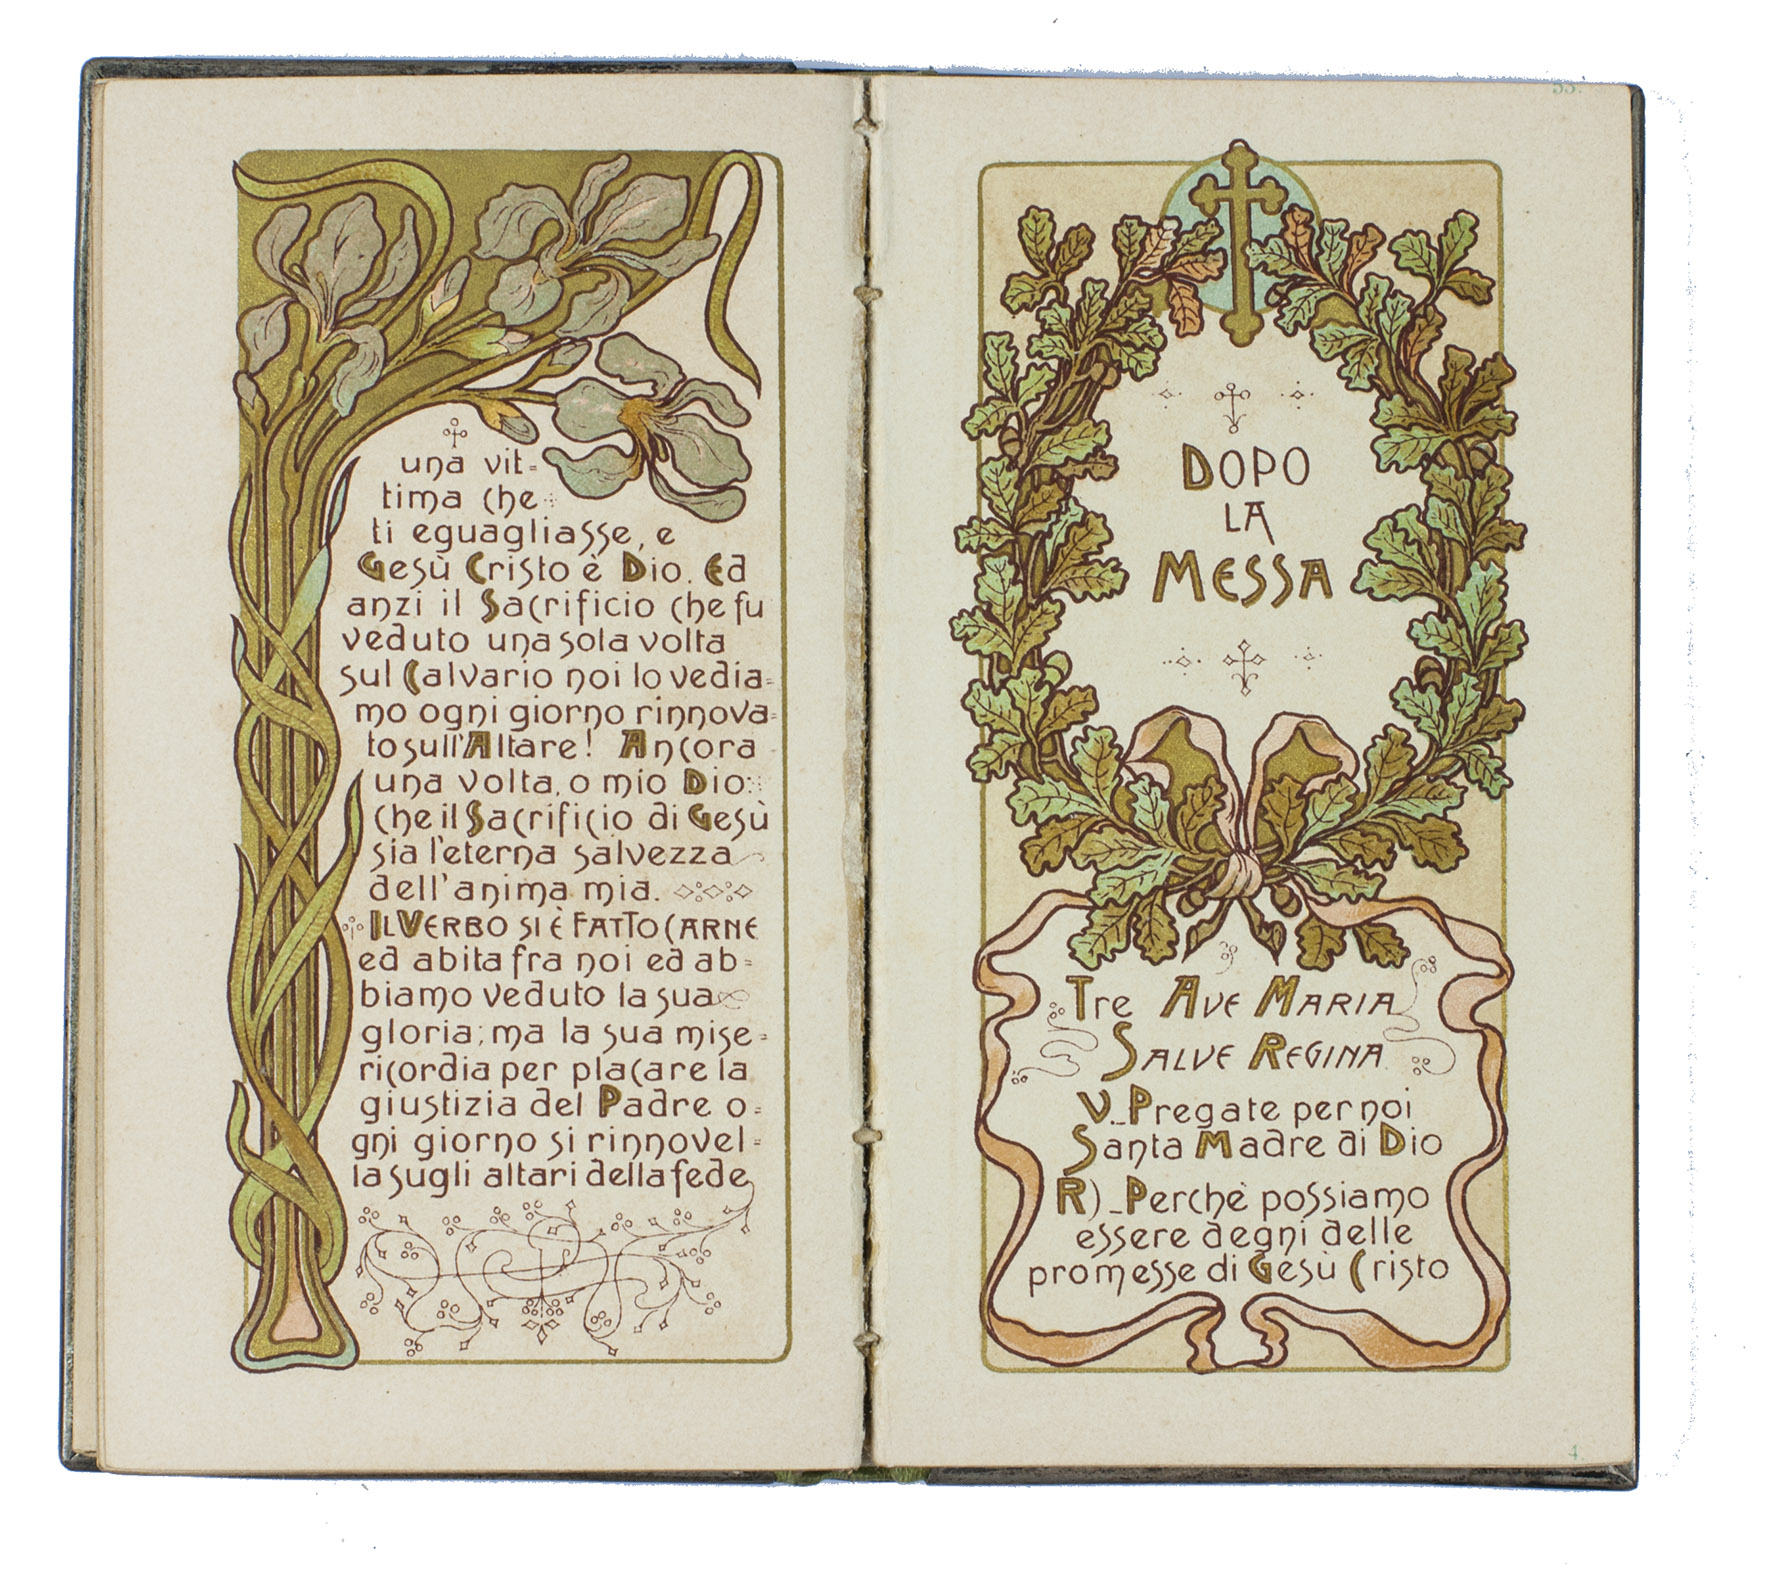 una vit=
tima che
ti eguagliasse, e
Gesù Cristo è Dio. Ed
anzi il Sacrificio che fu
veduto una sola volta
sul Calvario noi lo vedia=
mo ogni giorno rinnova=
to sull'Altare! Ancora
una volta, o mio Dio:
che il Sacrificio di Gesù
sia l'eterna salvezza
dell'anima mia.
IL VERBO SI È FATTO CARNE
ed abita fra noi ed ab=
biamo veduto la sua
gloria; ma la sua mise=
ricordia per placare la
giustizia del Padre o=
gni giorno si rinnovel=
la sugli altari della fede
33.
DOPO
LA
MESSA
Tre AVE MARIA
SALVE REGINA
V._Pregate per noi
Santa Madre di Dio
R)_Perchè possiamo
essere degni delle
promesse di Gesù Cristo
4.